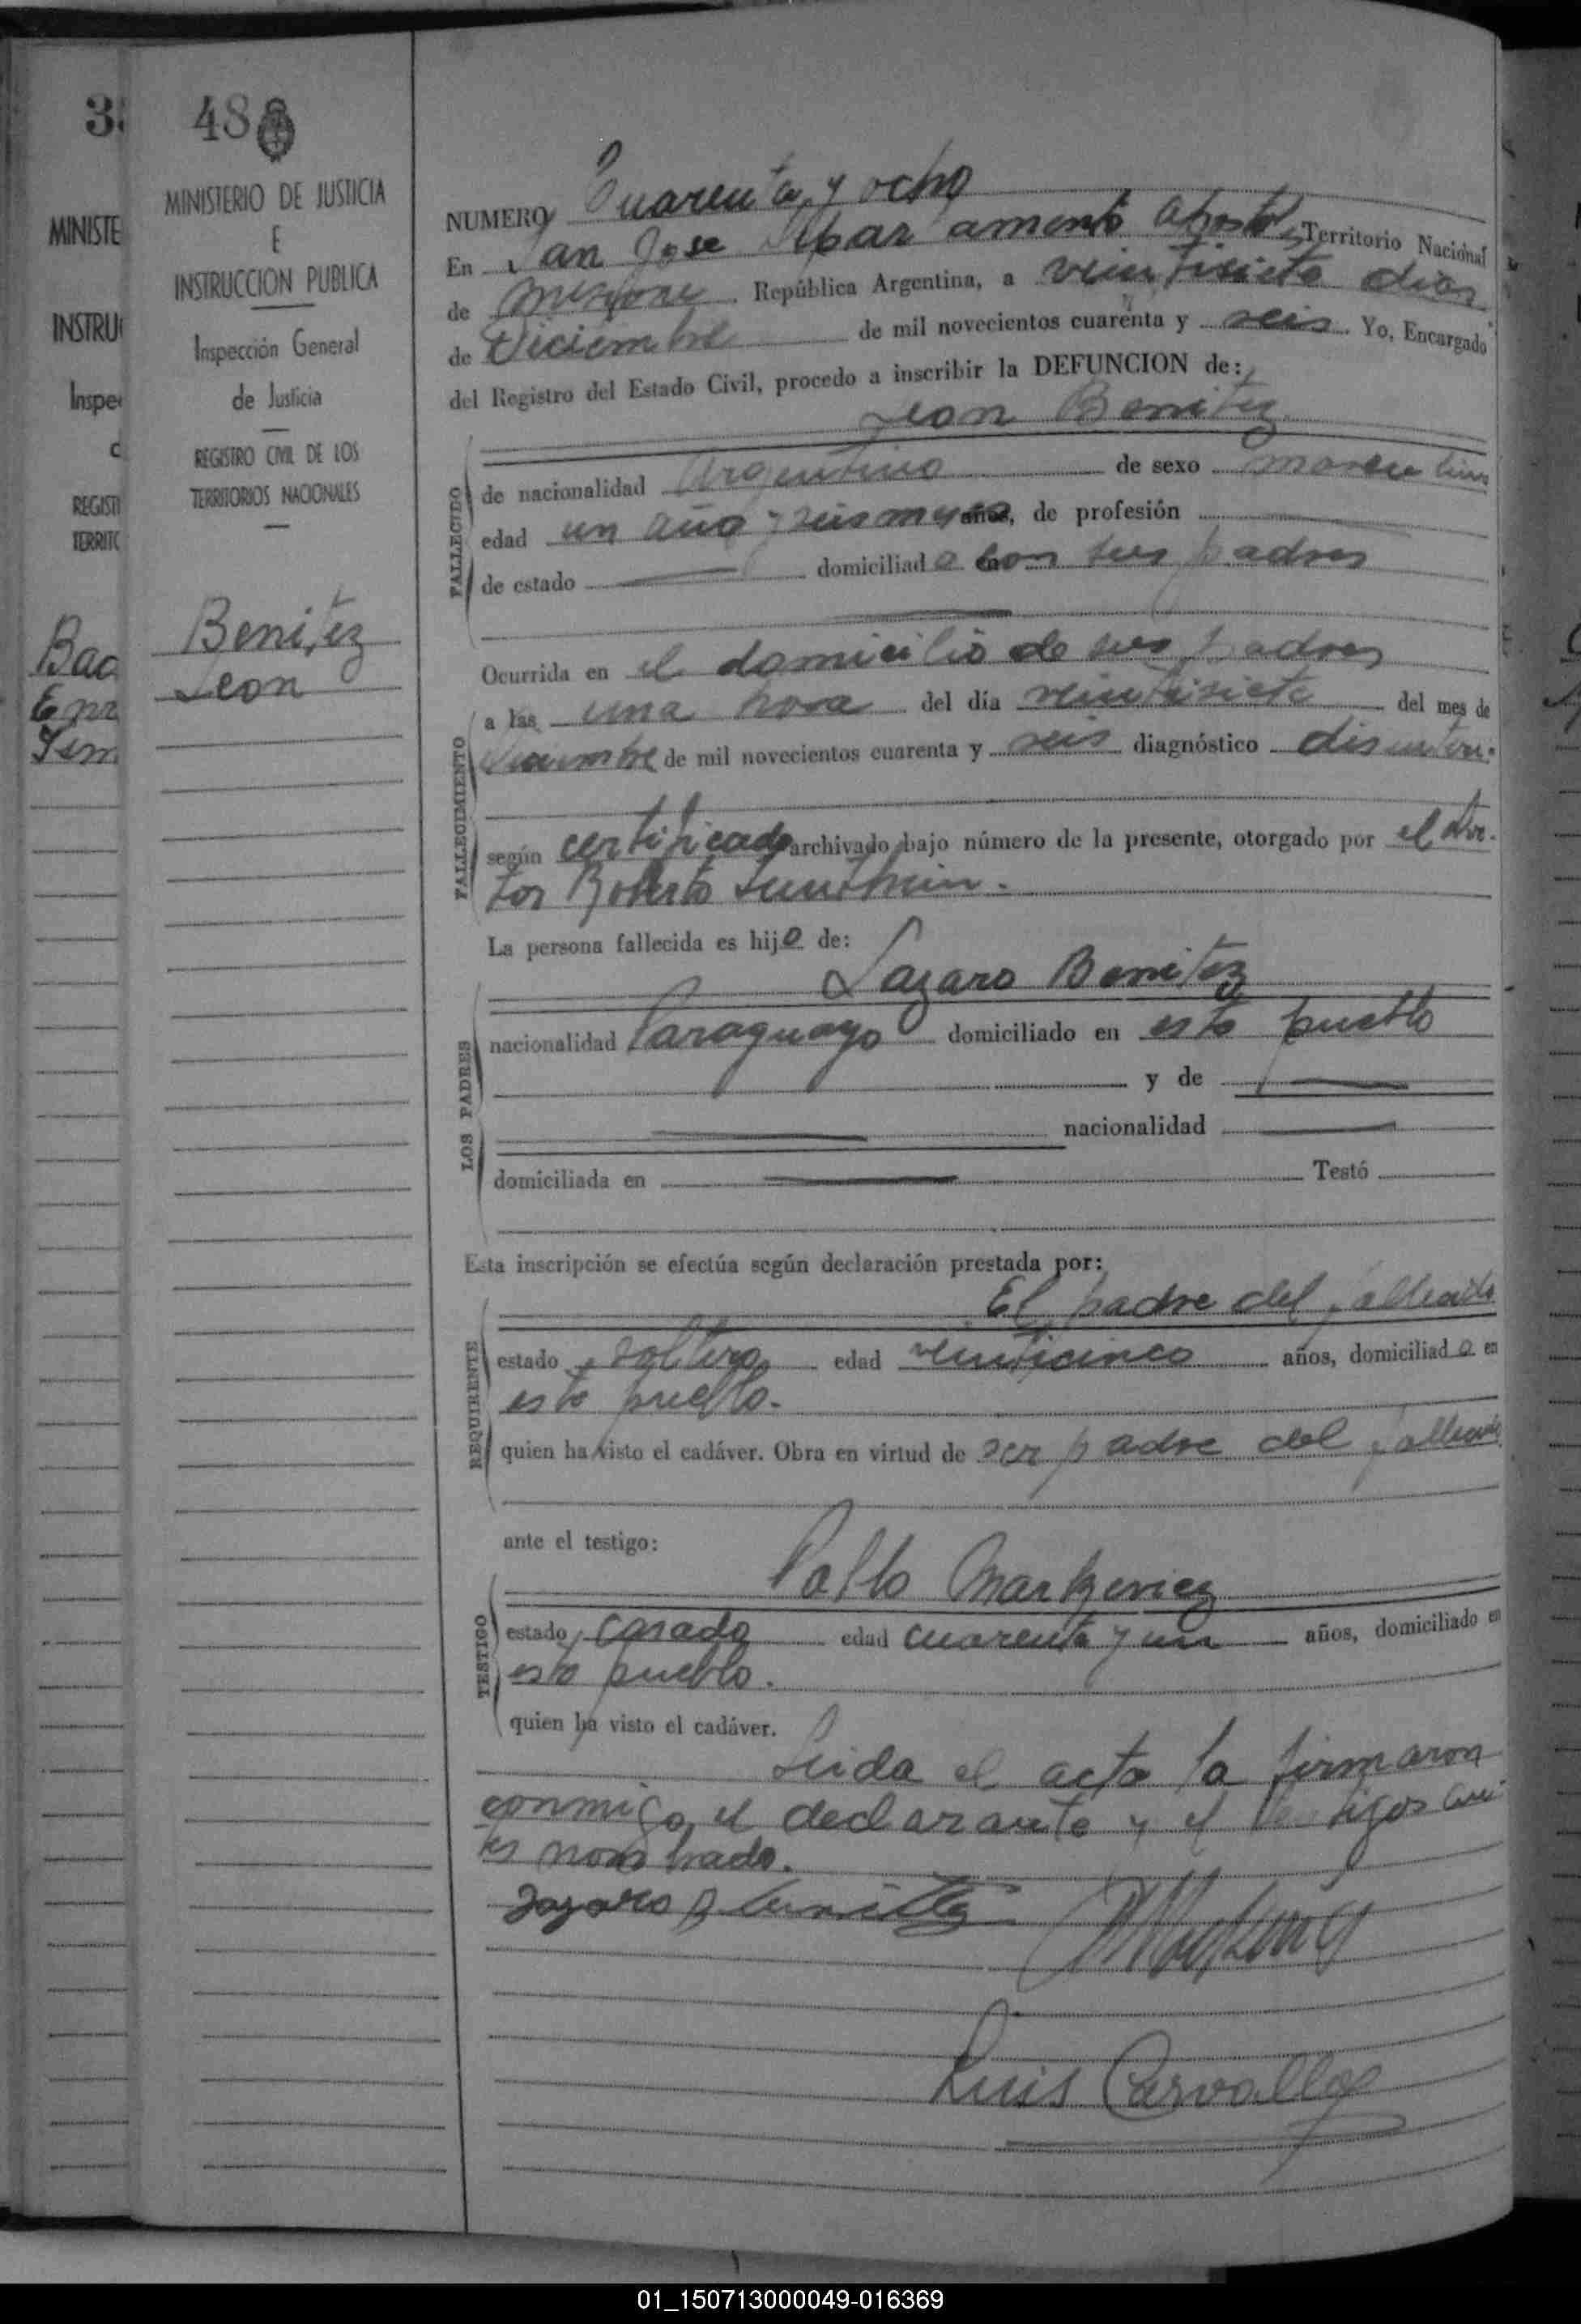 3
48
MINISTERIO DE JUSTICIA
E
INSTRUCCION PUBLICA
Inspección General
de Justicia
REGISTRO CIVIL DE LOS
TERRITORIOS NACIONALES
Benitez
Leon
MINISTE
INSTRU
Inspe
REGIST
TERRITO
Bao
NUMERO Cuarenta y ocho
En San Jose Departamento Apostoles Territorio Nacional
de Misiones República Argentina, a veintisiete dias
de Diciembre de mil novecientos cuarenta y seis. Yo, Encargado
del Registro del Estado Civil, procedo a inscribir la DEFUNCION de:
Leon Benitez
FALLECIDO
de nacionalidad Argentino de sexo masculino
edad un año y seis meses años, de profesión
de estado domiciliado con sus padres
Ocurrida en el domicilio de sus padres
FALLECIMIENTO
a las una hora del día veintisiete del mes de
Diciembre de mil novecientos cuarenta y seis diagnóstico
según certificado archivado bajo número de la presente, otorgado por el doc-
tor Roberto
La persona fallecida es hijo de:
Lazaro Benitez
LOS PADRES
nacionalidad Paraguayo domiciliado en este pueblo
y de
nacionalidad
domiciliada en Testó
Esta inscripción se efectúa según declaración prestada por:
El padre del fallecido
REQUIRENTE
estado soltero edad veinticinco años, domiciliado en
este pueblo.
quien ha visto el cadáver. Obra en virtud de ser padre del fallecido
ante el testigo:
Pablo Markievicz
TESTIGO
estado casado edad cuarenta y un años, domiciliado en
este pueblo.
quien ha visto el cadáver.
Leida el acta la firmaron
conmigo, el declarante y el testigos an-
tes nombrado.
Lazaro Benitez
Luis Carvallo
01_150713000049-016369